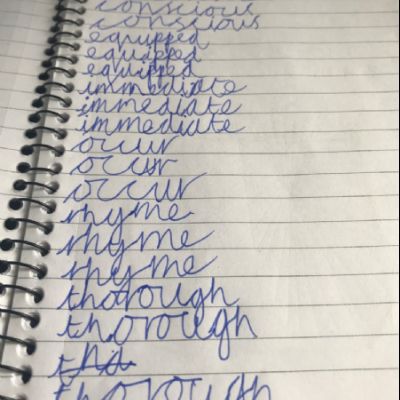 conscious
conscious
equipped
equipped
equipped
immediate
immediate
immediate
occur
occur
occur
rhyme
rhyme
rhyme
thorough
thorough
thorough